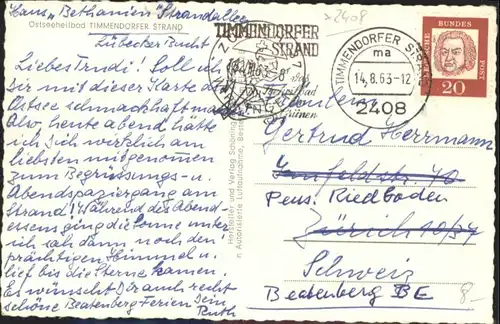 Haus „Bethanien" Strandallee
Ostseeheilbad TIMMENDORFER STRAND
Lübecker Bucht
Liebe Trudi! Soll ich
dir mit dieser Karte die
Ostsee schmackhaft ma
Also, heute abend hätte
ich Dich wirklich am
liebsten mitgenommen
zum Begrüssungs- u.
Abendspaziergang am
Strand! Während des Abend-
essens ging die Sonne unter
ich sah dann noch den
prächtigen Himmel u.
lief bis die Sterne kamen.
Es wünscht Dir auch recht
schöne Beatenberg Ferien Dein
Ruth
Hersteller und Verlag Schöning
Autorisierte Luftaufnahme, Best
2408
TIMMENDORFER
STRAND
das
Ostseebad
im Grünen
TIMMENDORFER STRAND
ma
14.8.63-12
2408
DEUTSCHE BUNDESPOST
20
Gertrud Herrmann
Pens. Riedboden
Zürich 10/37
Schweiz
Beatenberg BE
8.-